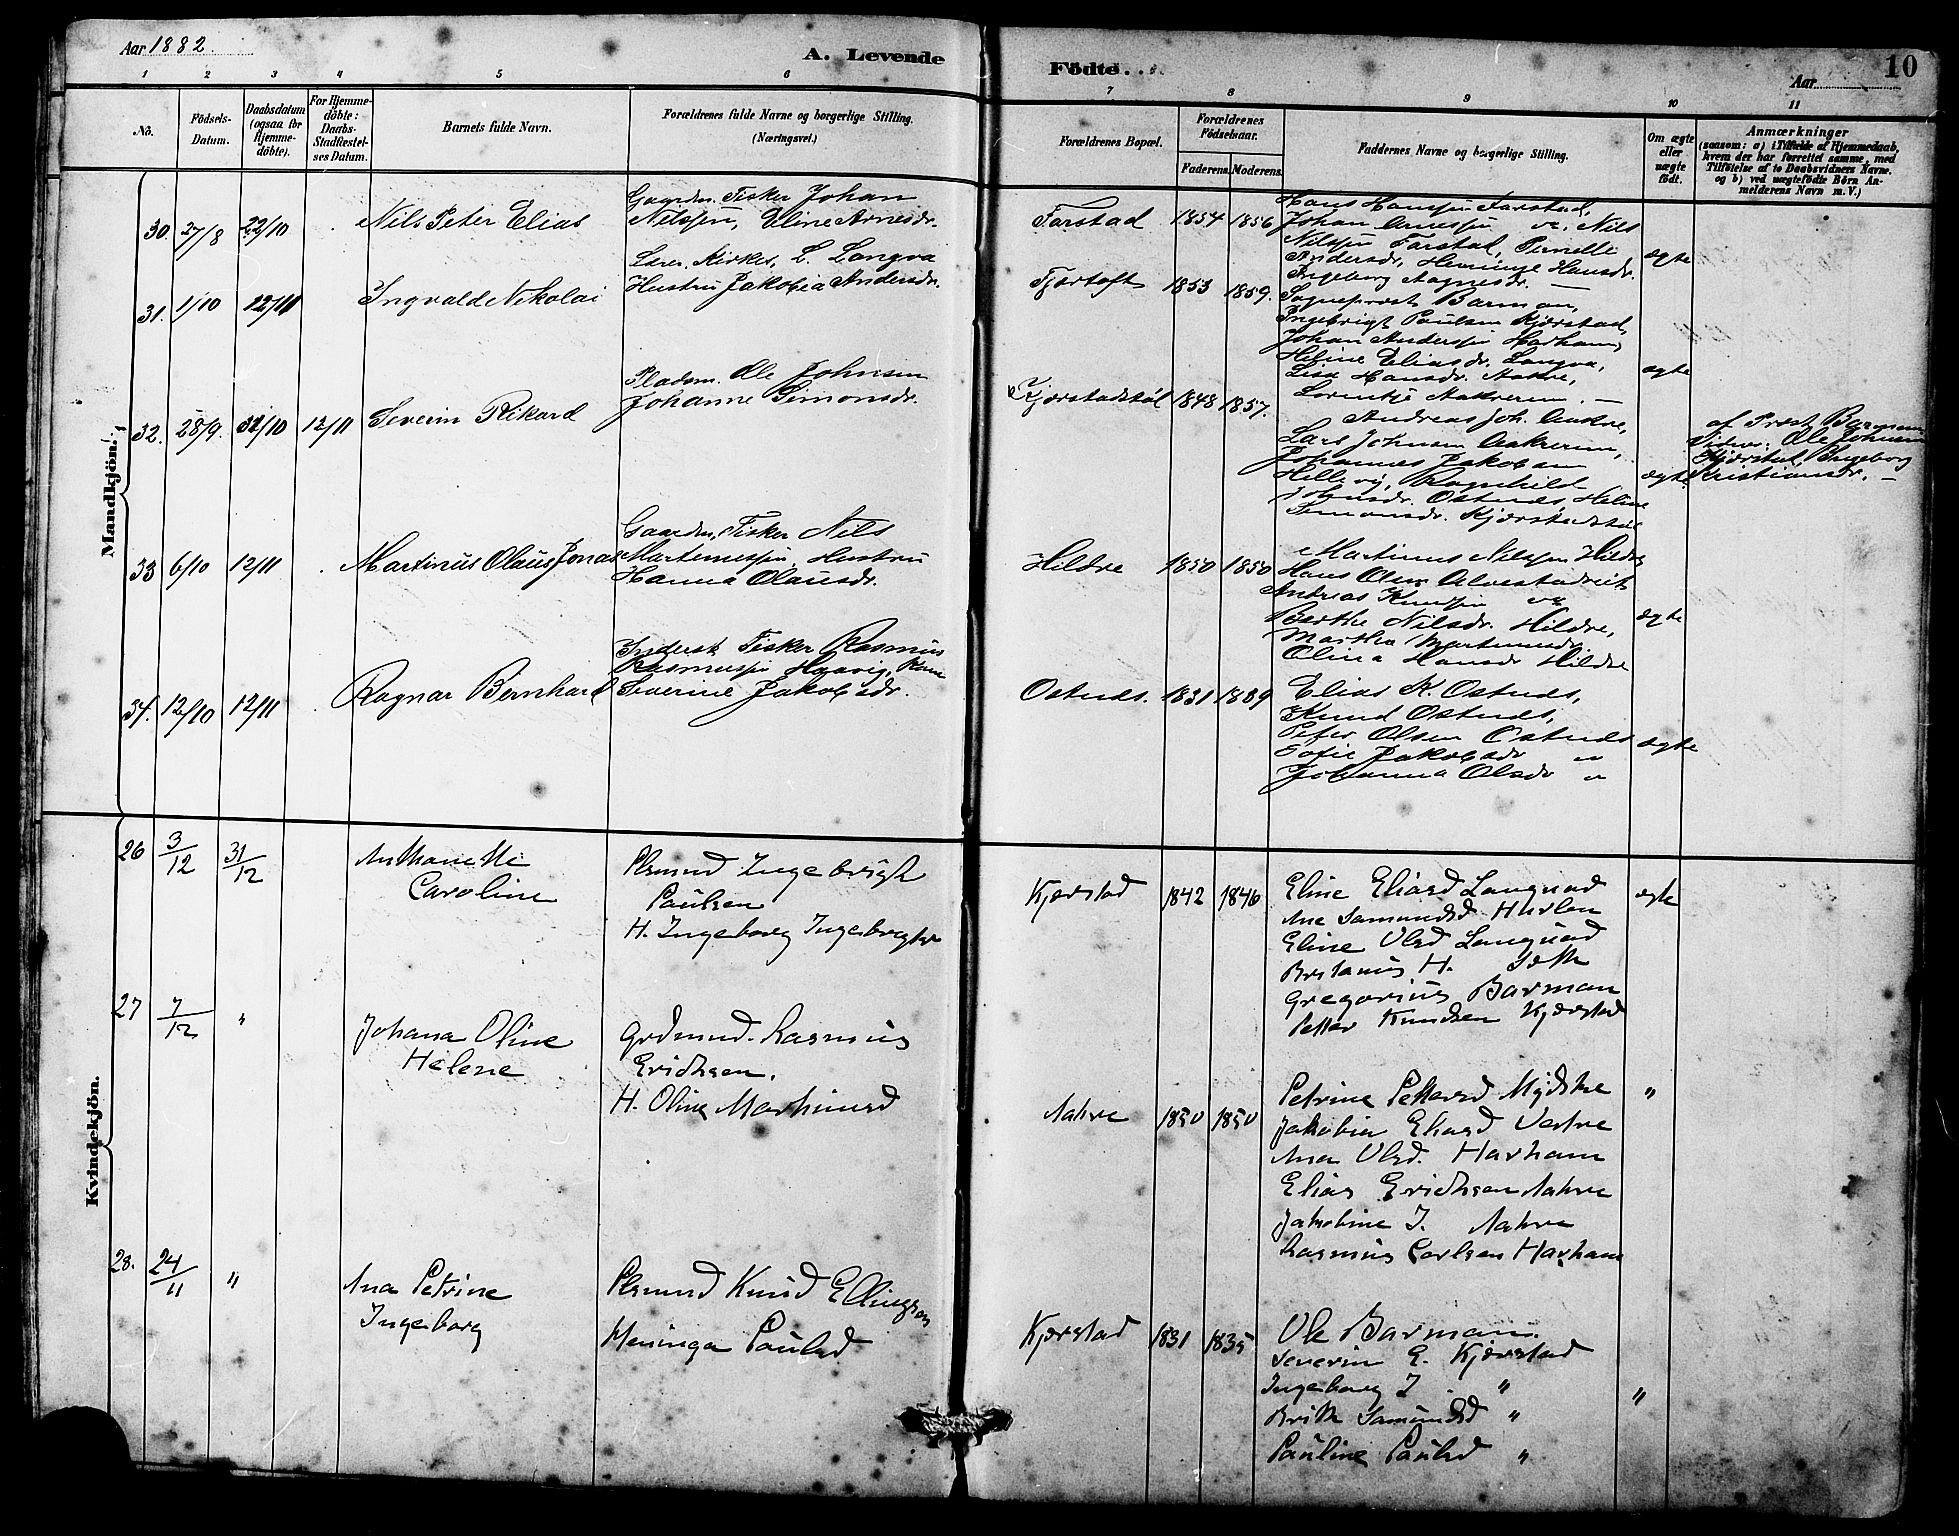 Aar 1882.
A. Levende
Födte.
Aar
10
1 2 3 4 5 6 7 8 9 10 11
No.
Födsels-
Datum.
Daabsdatum
(ogsaa for
Hjemme-
döbte).
For Hjemme-
döbte:
Daabs-
Stadfæstel-
ses Datum.
Barnets fulde Navn.
Forældrenes fulde Navne og borgerlige Stilling.
(Næringsvei.)
Forældrenes Bopæl.
Forældrenes
Födselsaar.
Faderens. Moderens.
Faddernes Navne og borgerlige Stilling.
Om ægte
eller
uægte
födt.
Anmærkninger
(saasom: a) i Tilfælde af Hjemmedaab,
hvem der har forrettet samme, med
Tilföielse af to Daabsvidners Navne.
og b) ved uægtefödte Börn An-
melderens Navn m. V.)
Mandkjön.
30. 27/8 22/10
Nils Peter Elias
Gaardm. Fisker Johan
Nilssen, Eline Arnesdr.
Farstad 1854 1856
Hans Hanssen Farstad,
Johan Arnessen Nils
Nilssen Farstad, Pernelle
Andersdr, Henninge Hansdr.
Ingeborg Aagnesdr. —
ægte
31. 1/10 12/11
Ingvald Nikolai
Lærer, Kirkes. L. Longva
Hustru Jakobia Andersdr.
Fjærtoft 1853 1859.
Sogneprest Barman,
Ingebrigt Paulsen Kjærstad,
Johan Anderssen Harham,
Heline Eliasdr. Longva,
Lisa Hansdr. Aakre,
ægte
32. 28/9. 31/10 12/11
Severin Rikard
Pladsm. Ole Johnsen
Johanne Simonsdr.
Kjærstadstöl 1848 1857.
Andreas Joh. Aakre,
Lars Johnsen Aakrerem,
Johannes Jakobsen
Hellevig, Ragnhild
Johnsdr. Ostnes, Heline
Simonsdr. Kjærstadstöl
ægte
af Præst Barman
Vidner: Ole Johnsen
Kjærstad, Ingeborg
Kristiansdr. —
33 6/10 12/11
Martinus Olaus Jonas
Gaardm. Fisker Nils
Martinussen, Hustru
Hanna Olausdr.
Hildre 1850 1850
Martinus Nilssen Hildre
Hans Olsen
Andreas Knudsen
Berthe Nilsdr. Hildre,
Martha Martinusdr.
Olina Hansdr Hildre
ægte
34. 12/10 12/11
Ragnar Bernhard
Inderst Fisker Rasmus
Rasmussen Kone
Severine Jakobsdr.
Ostnes. 1831 1839
Elias K. Ostnes,
Knud Ostnes,
Peter Olsen Ostnes
Sofie Jakobsdr "
Johanna Olsdr "
ægte
Kvindekjön.
26 3/12 31/12
Anthonette
Caroline
Pladsmd Ingebrigt
Paulsen
H. Ingeborg Ingebrigtsd
Kjærstad 1842 1846
Eline Eliasd Langnæs
Ane Samundsd Hurlen
Eline Olsd Langnæs
H.
Gregorius Barman
Petter Knudsen Kjærstad
ægte
27 7/12 "
Johana Oline
Helene
Grdmnd. Rasmus
Erichsen.
H. Oline Martinusd
Aakre 1850 1850
Petrine Pettersd
Jakobia Eliasd
Ana Olsd. Harham
Elias Erichsen Aakre
Jakobine J. Aakre
Rasmus Carlsen Harham
"
28. 24/11 "
Ana Petrine
Ingeborg
Plsmnd Knud Ellingsen
Heninga Paulsd
Kjærstad 1831 1835
Ole Barman.
Severin E. Kjærstad
Ingeborg I. "
Brith Samundsd "
Pauline Paulsd "
"